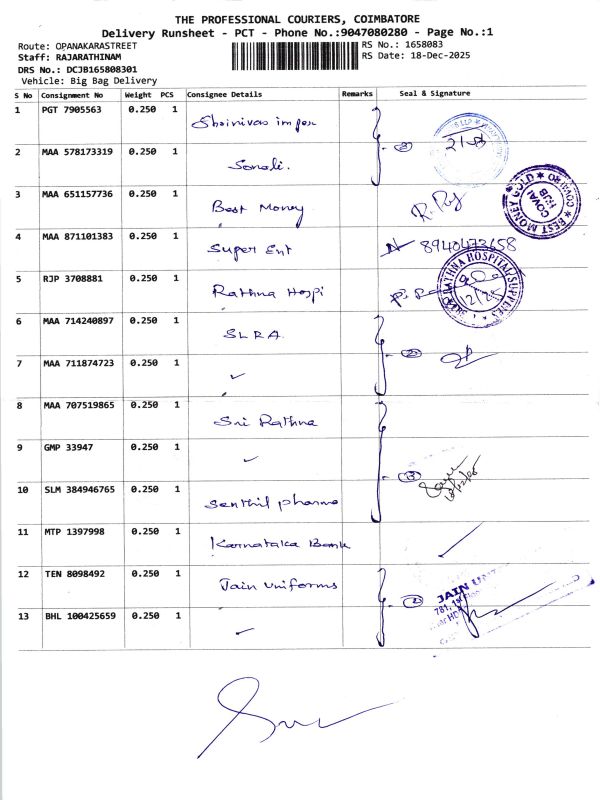 THE PROFESSIONAL COURIERS, COIMBATORE
Delivery Runsheet - PCT - Phone No.:9047080280 - Page No.:1
Route: OPANAKARASTREET
RS No.: 1658083
Staff: RAJARATHINAM
RS Date: 18-Dec-2025
DRS No.: DCJB165808301
Vehicle: Big Bag Delivery
S No Consignment No Weight PCS Consignee Details Remarks Seal & Signature
1 PGT 7905563 0.250 1 Shrinivas impex
2 MAA 578173319 0.250 1 Sonali.
3 MAA 651157736 0.250 1 Best Money
BEST MONEY GOLD
COVAI HUB
4 MAA 871101383 0.250 1 Super Ent 8940473658
5 RJP 3708881 0.250 1 Rathna Hospi
RATHNA HOSPITAL SUPPLIES
6 MAA 714240897 0.250 1 SLRA. 2
7 MAA 711874723 0.250 1 ✓
8 MAA 707519865 0.250 1 Sri Rathna
9 GMP 33947 0.250 1 ✓ 3
18/12/25
10 SLM 384946765 0.250 1 Senthil pharma
11 MTP 1397998 0.250 1 Karnataka Bank ✓
12 TEN 8098492 0.250 1 Jain uniforms 2
JAIN
13 BHL 100425659 0.250 1 ✓